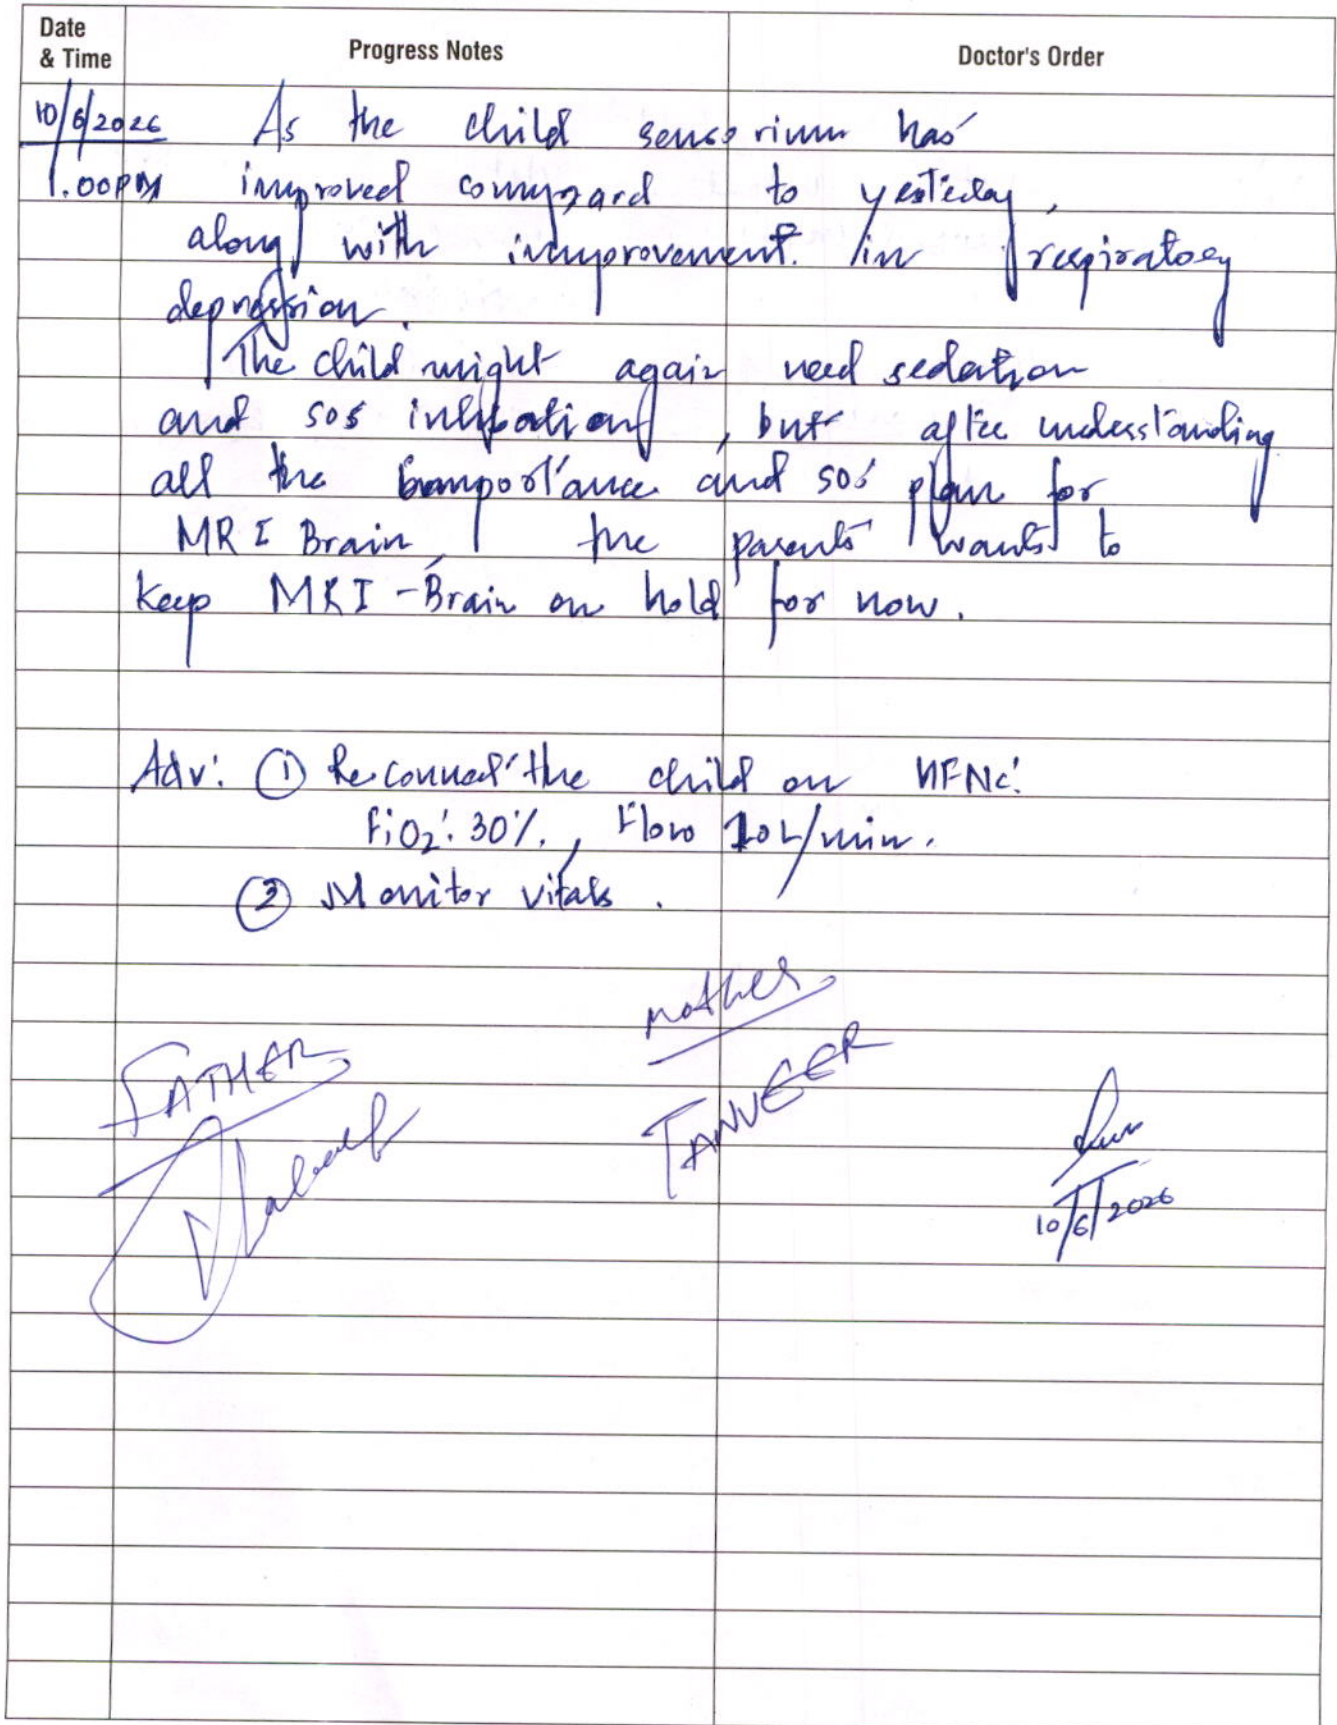 Date & Time Progress Notes Doctor's Order
10/6/2026 As the child sensorium has
1.00PM improved compard to yesteday,
along with improvement. in respiratory
depression.
The child might again need sedation
and sos intubation, but after understanding
all the importance and sos plan for
MRI Brain, the parents wants to
keep MRI-Brain on hold for now.
Adv: ① Reconnect the child on HFNC:
FiO2: 30%, Flow 10L/min.
② Monitor vitals.
mother
FATHER
TANVEER
10/6/2026